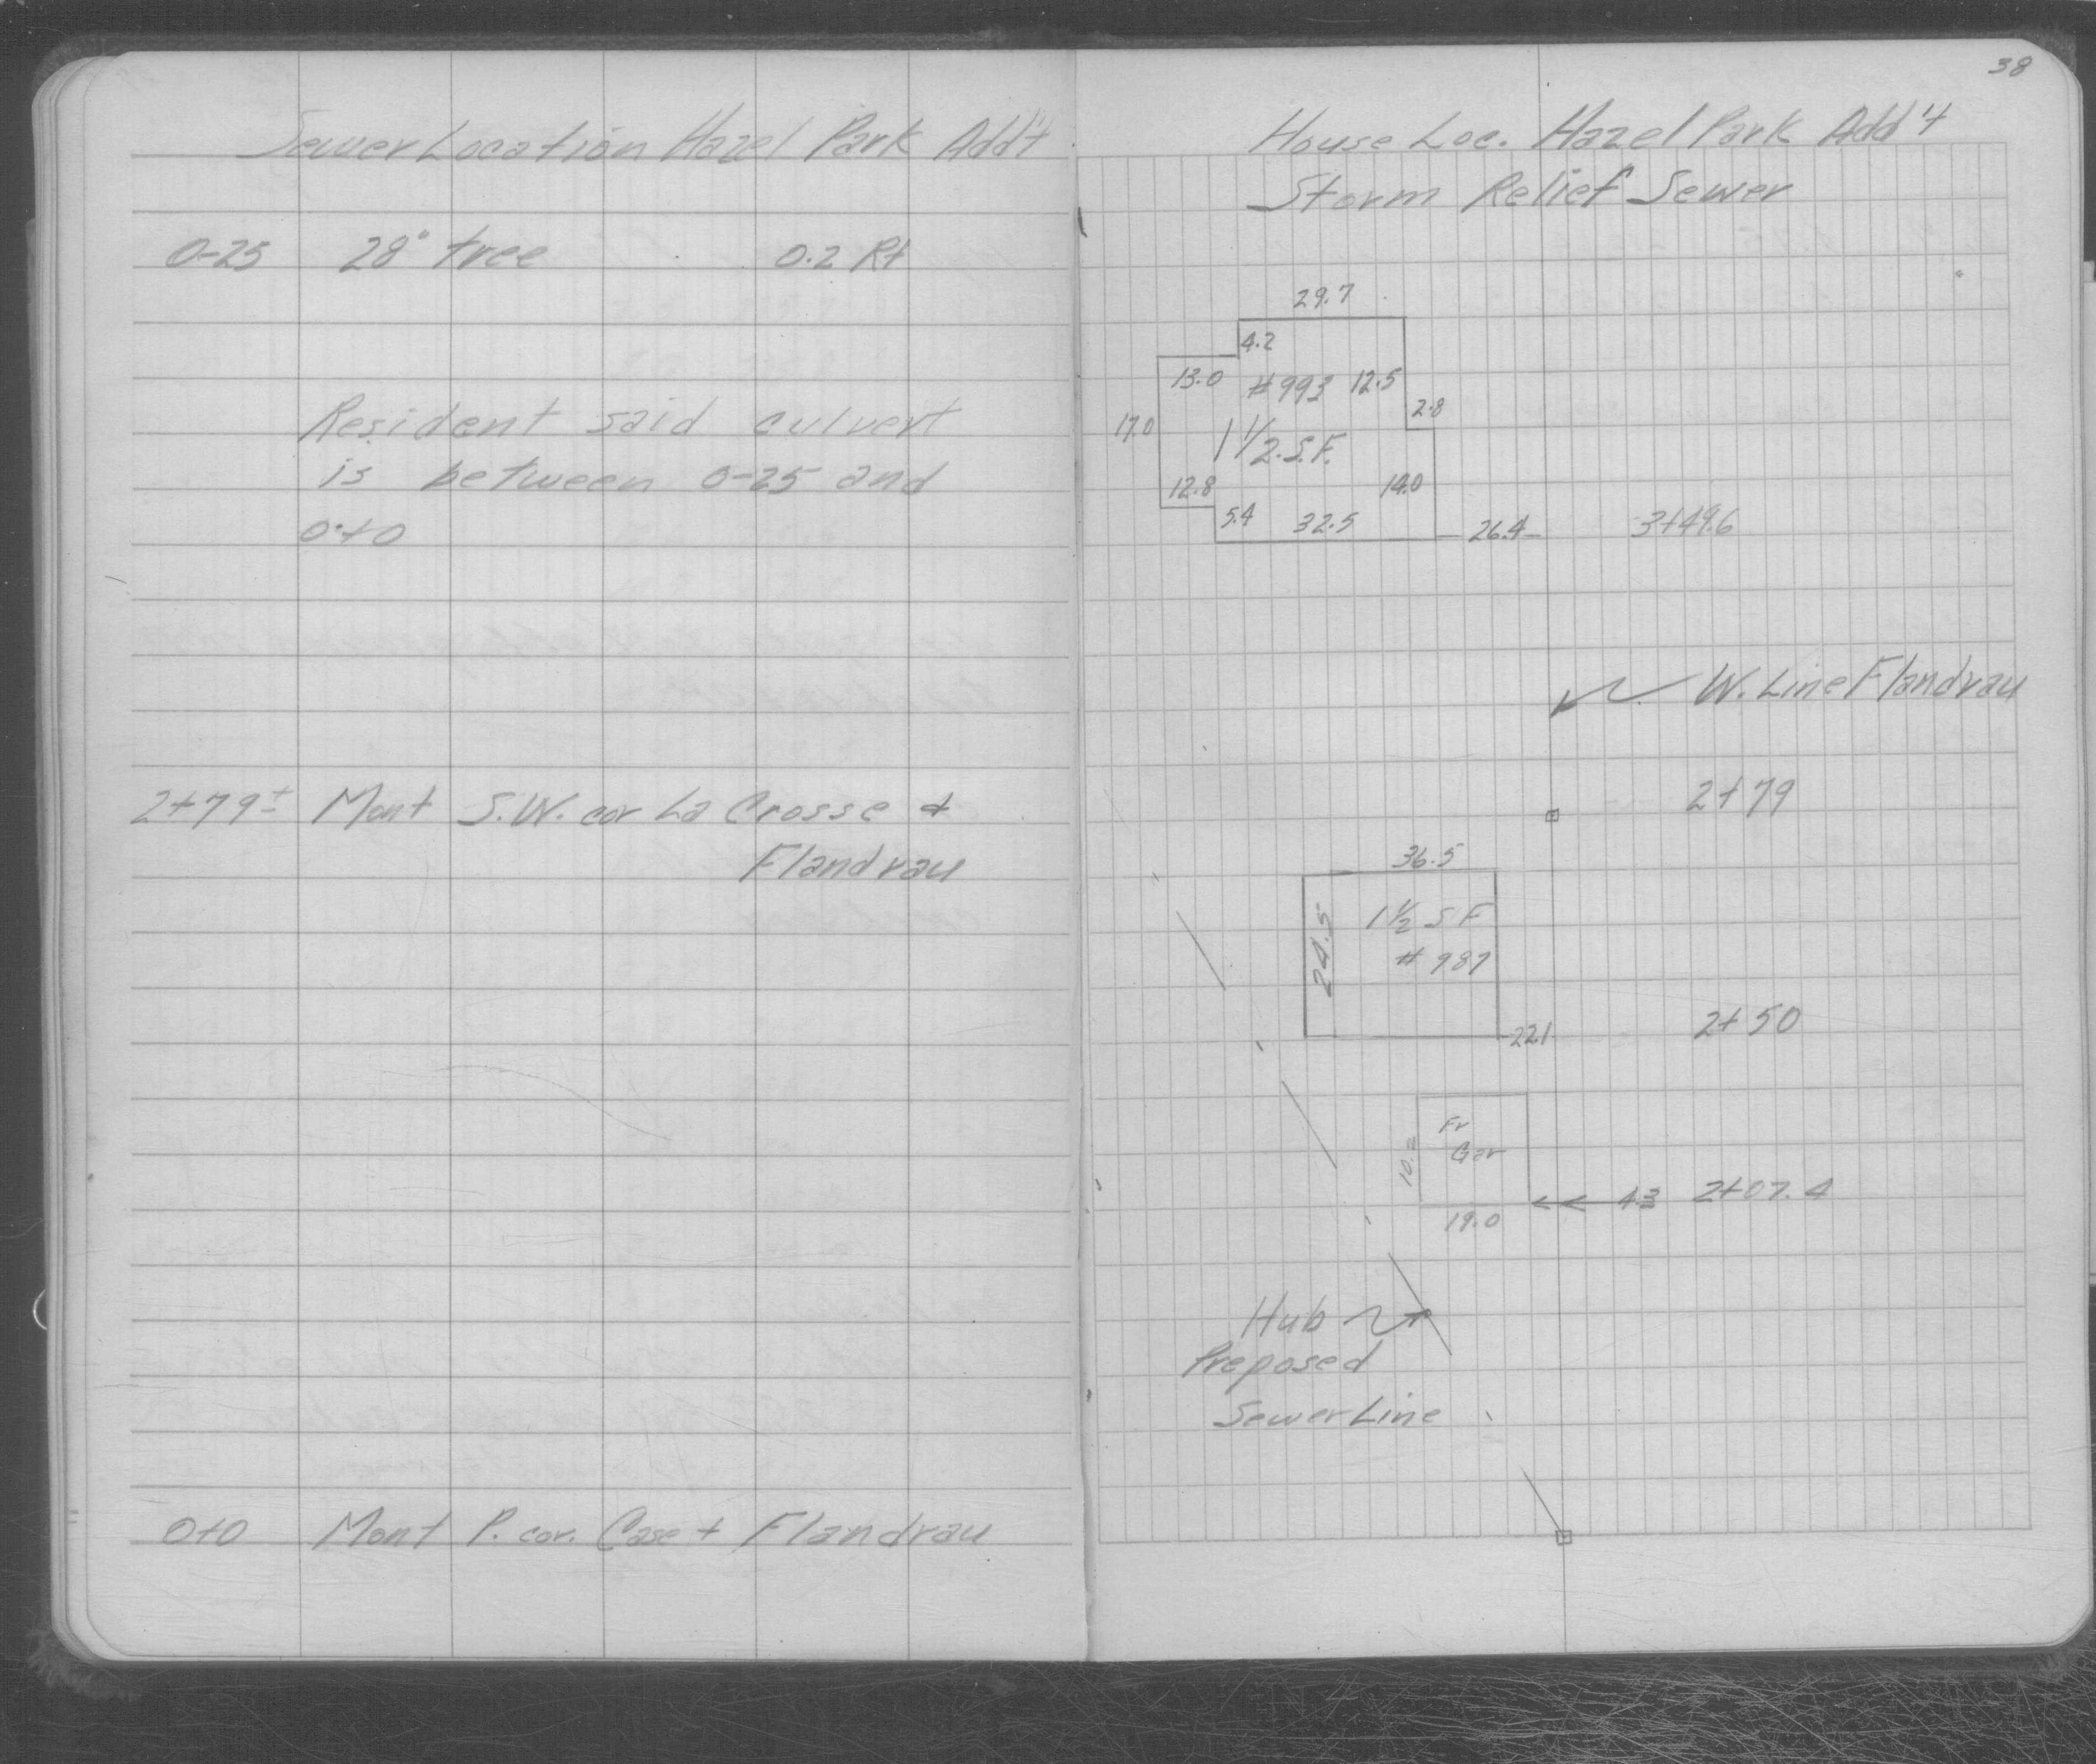 Sewer Location Hazel Park Add't
0-25 28" tree 0.2 Rt
Resident said culvert
is between 0-25 and
0+0
2+79± Mont S.W. cor La Crosse +
Flandrau
0+0 Mont P. cor. Case + Flandrau
38
House Loc. Hazel Park Add't
Storm Relief Sewer
29.7
4.2
13.0 #993 12.5
2.8
17.0
1 1/2 .S.F.
12.8 14.0
5.4 32.5 26.4 3+49.6
W. Line Flandrau
2+79
36.5
1 1/2 S F
24.5 # 987
22.1 2+50
Fr
Gar
4.3 2+07.4
19.0
Hub
Proposed
Sewer Line